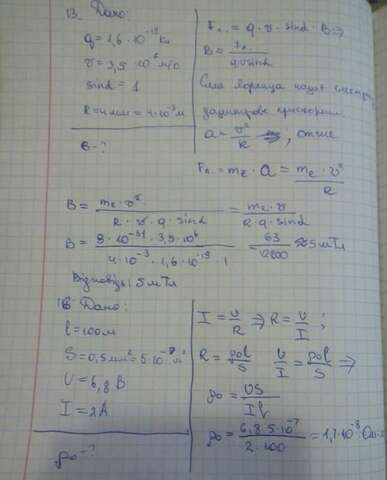 13. Дано:
q = 1,6 · 10⁻¹⁹ Кл
v = 3,5 · 10⁶ м/с
sinα = 1
R = 4 мм = 4 · 10⁻³ м
B - ?
Fл. = q · v · sinα · B ⇒
B = Fл. / qvsinα
Сила Лоренца надає
прискорення
a = v² / R ; отже
Fл. = mₑ · a = mₑ · v² / R
B = mₑ · v² / R · v · q · sinα = mₑ · v / R · q · sinα
B = 9 · 10⁻³¹ · 3,5 · 10⁶ / 4 · 10⁻³ · 1,6 · 10⁻¹⁹ · 1 = 63 / 12800 ≈ 5 мТл
Відповідь: 5 мТл
Дано:
l = 100м
S = 0,5мм² = 5 · 10⁻⁷ м²
U = 6,8 В
I = 2А
ρ₀ - ?
I = U / R ⇒ R = U / I ;
R = ρ₀l / S U / I = ρ₀l / S ⇒
ρ₀ = US / Il
ρ₀ = 6,8 · 5 · 10⁻⁷ / 2 · 100 = 1,7 · 10⁻⁸